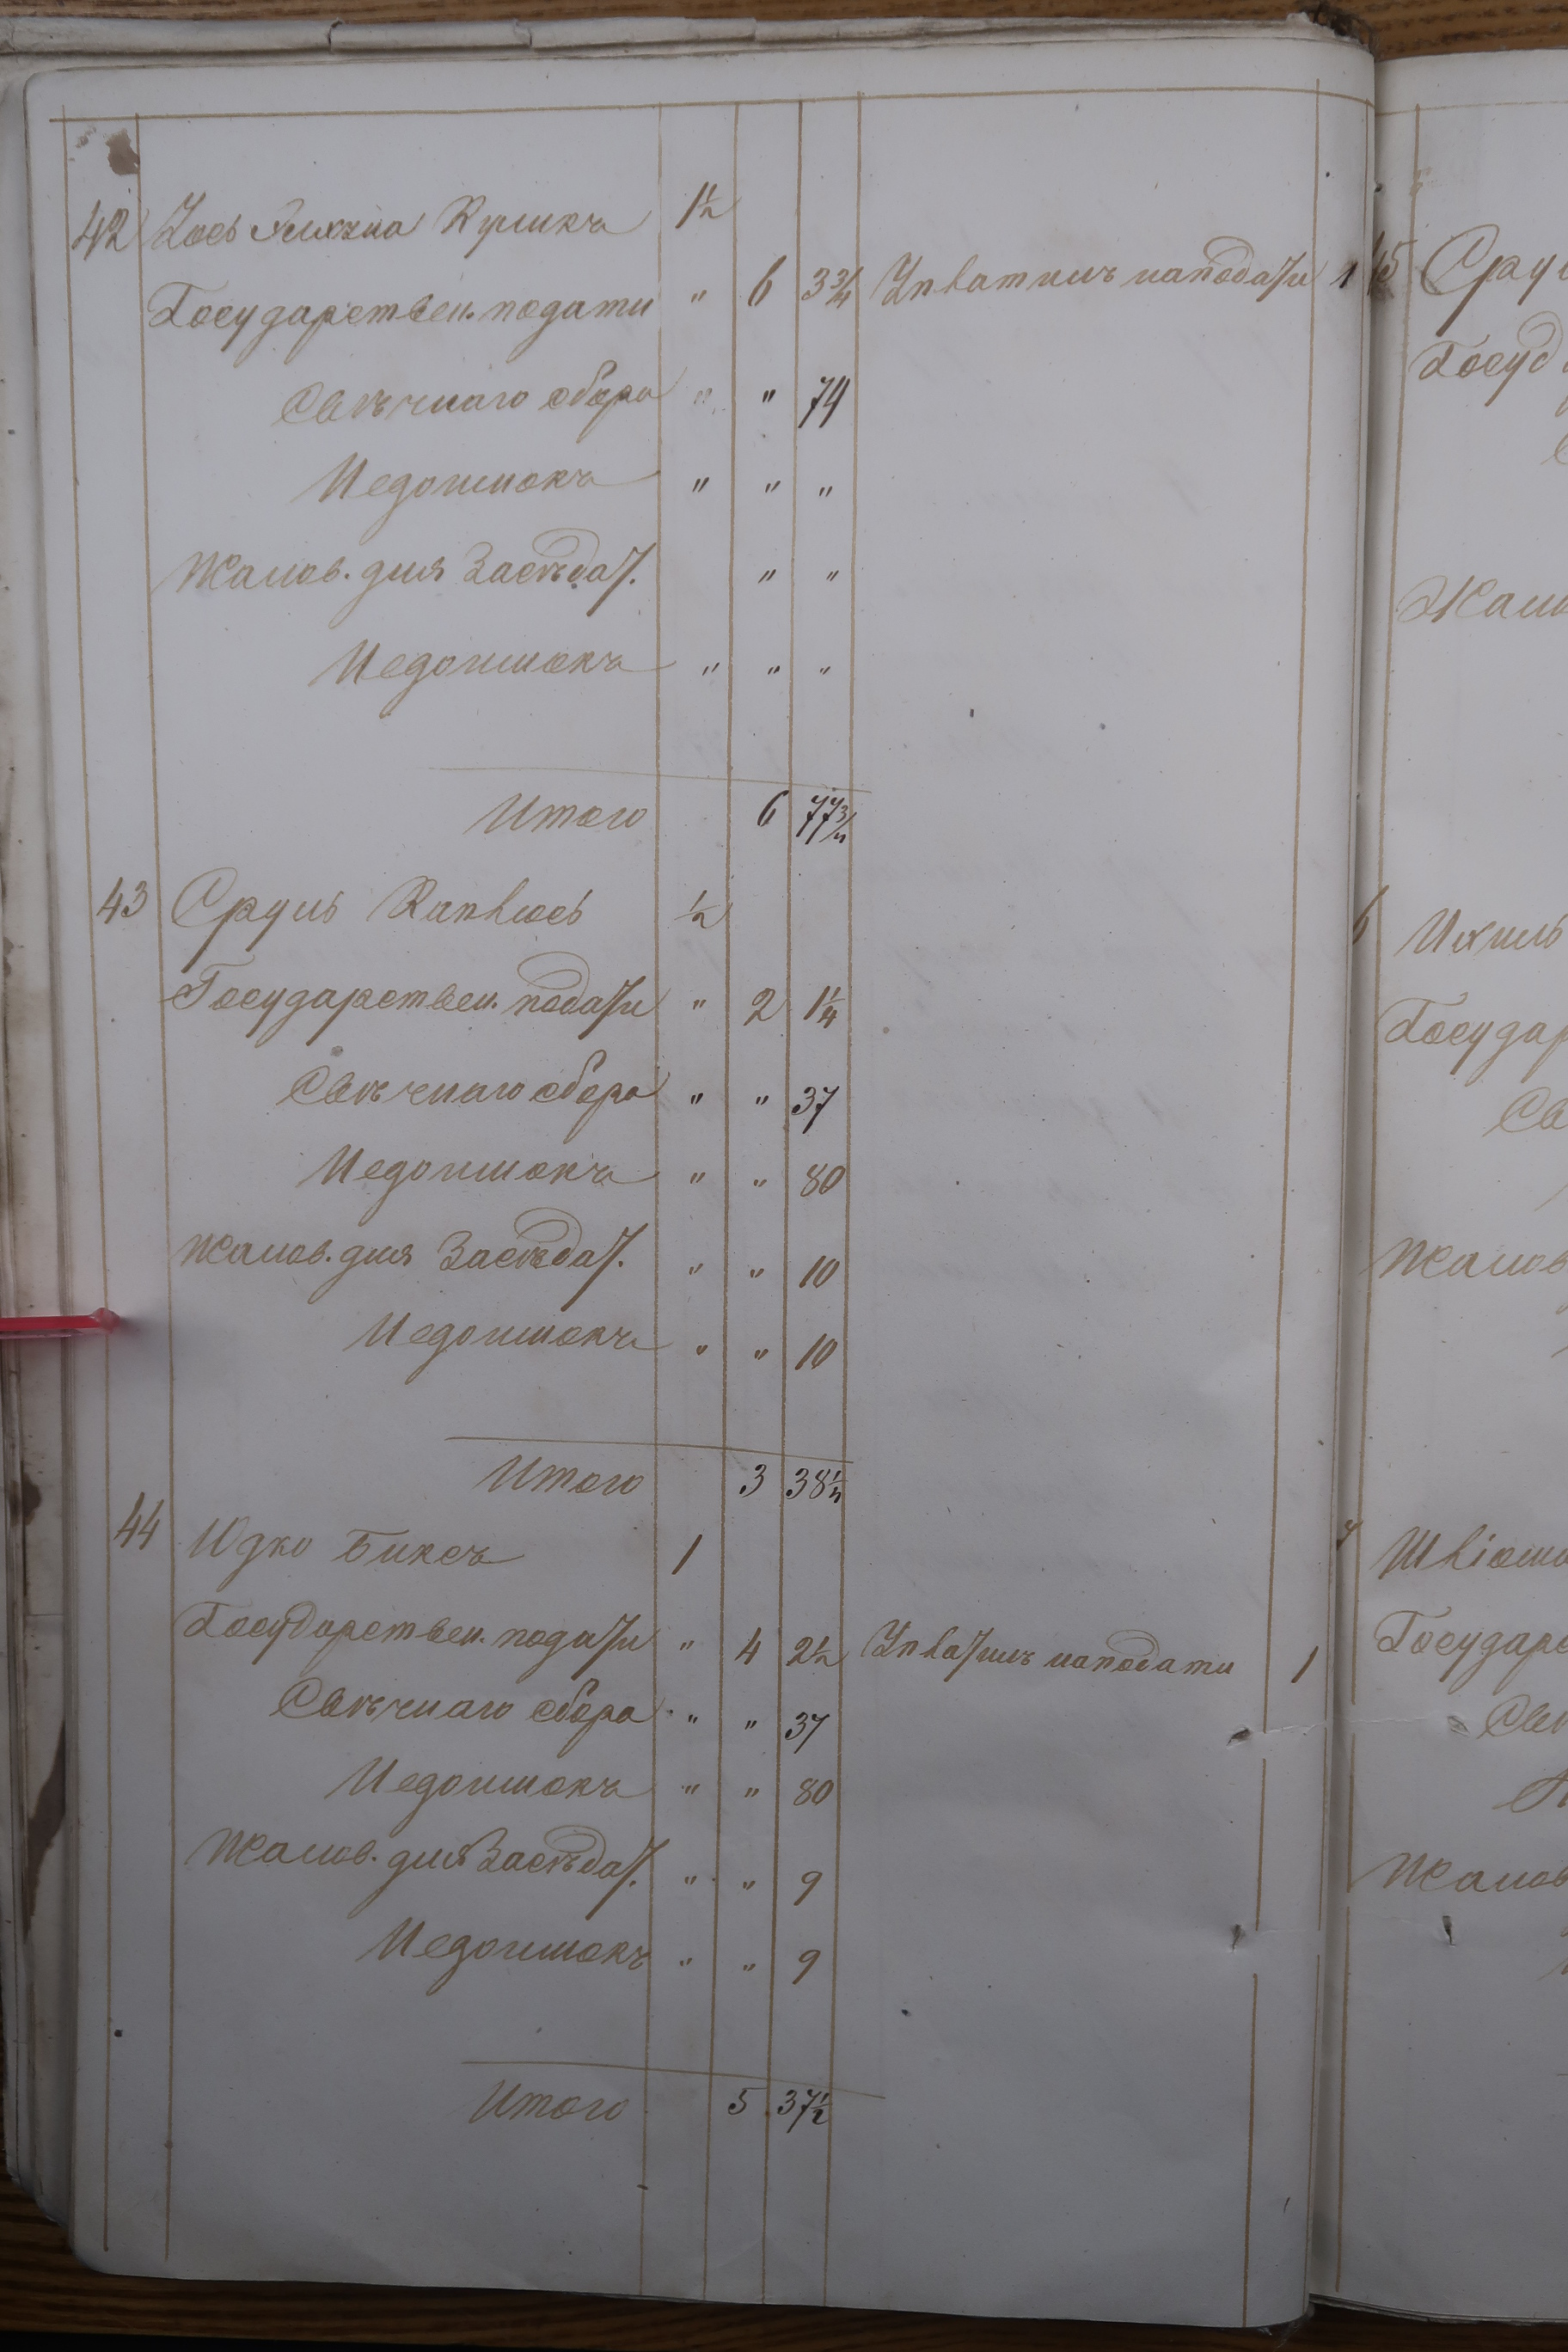 42 Іось Кушнъ 1½
Государствен. подати " 6 3¾ Уплатилъ на подати 1
Свѣчнаго сбора " " 74
Недоимокъ " " "
Жалов. для Засѣдат. " "
Недоимокъ " " "
Итого 6 77¾
43 Сруль Каплюсь ½
Государствен. подати " 2 1¼
Свѣчнаго сбора " " 37
Недоимокъ " " 80
Жалов. для Засѣдат. " " 10
Недоимокъ " " 10
Итого 3 38¼
44 Юдко Биксъ 1
Государствен. подати " 4 2½ Уплатилъ на подати 1
Свѣчнаго сбора " " 37
Недоимокъ " " 80
Жалов. для Засѣдат. " " 9
Недоимокъ " " 9
Итого 5 37½
45 Сру
Госуд
Жало
6 Ихиль
Государ
Св
Жалов
7
Государс
Свѣ
Жалов